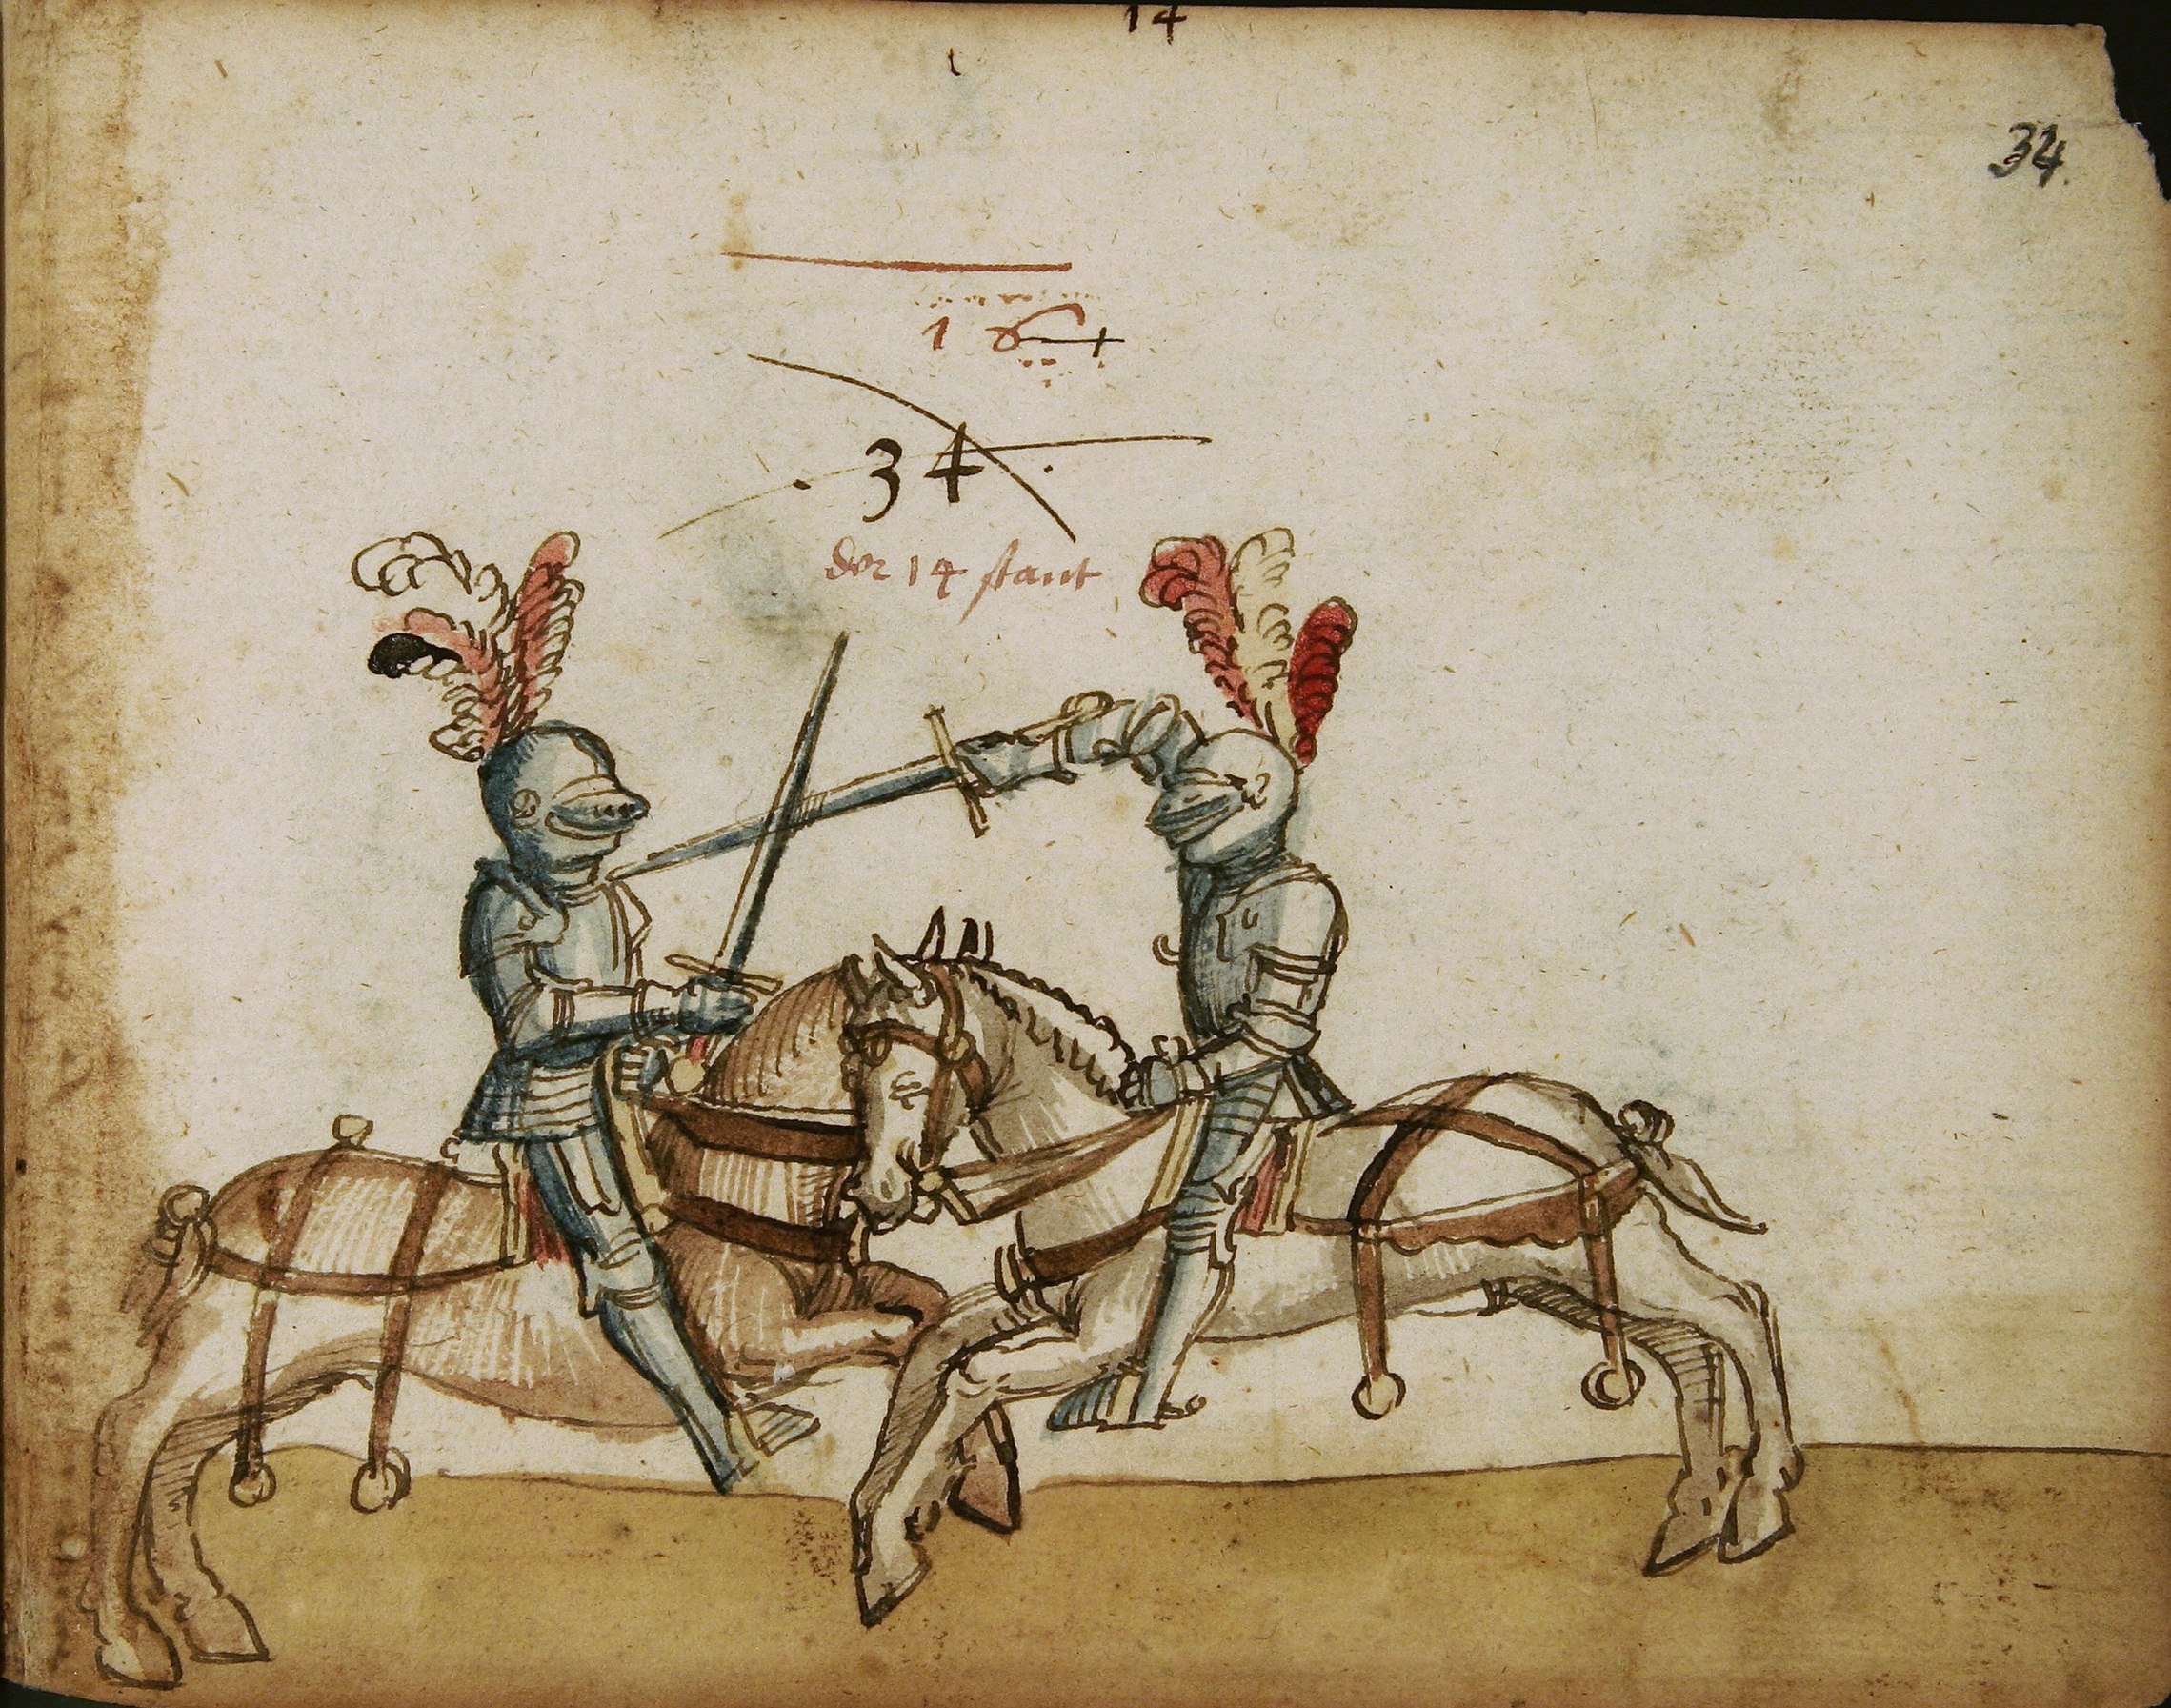 14
34.
164
. 34 .
der 14 stant